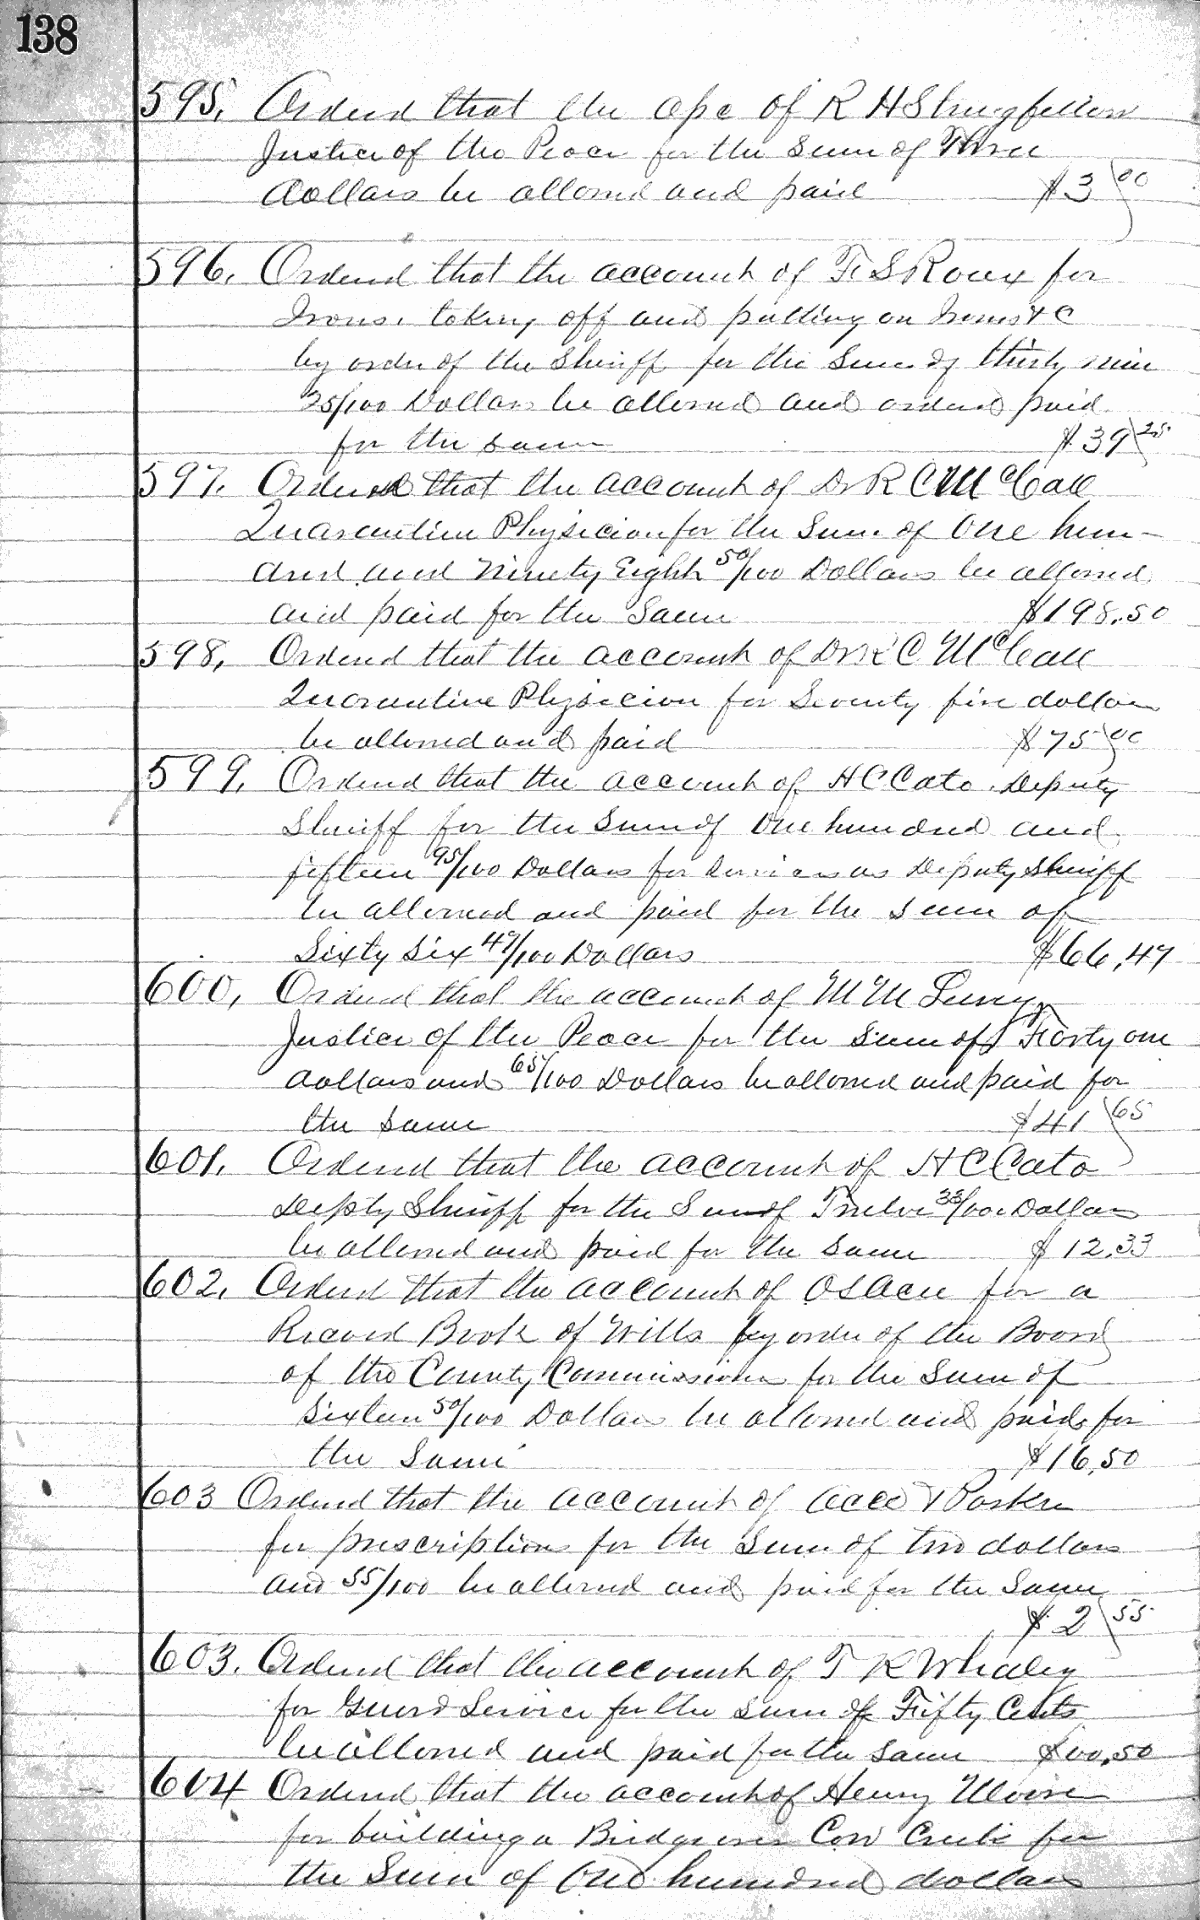 138
595. Ordered that the apc of R H Stringfellow
Justice of the Peace for the Sum of Three
Dollars be allowed and paid $3 00
596. Ordered that the account of F. S Roux for
Irons. taking off and putting on Irons & C
by order of the Sheriff for the Sum of thirty nine
25/100 Dollars be allowed and ordered paid
for the same $39 25
597. Ordered that the account of Dr R C McCall
Quarantine Physician for the Sum of One hun-
dred and Ninety Eight 50/100 Dollars be allowed
and paid for the Same $198.50
598. Ordered that the account of Dr R C McCall
Quarantine Physician for Seventy five dollars
be allowed and paid $75 00
599. Ordered that the account of H C Cato. Deputy
Sheriff for the Sum of One hundred and
fifteen 95/100 Dollars for Services as Deputy Sheriff
be allowed and paid for the sum of
Sixty Six 47/100 Dollars $66.47
600. Ordered that the account of M M
Justice of the Peace for the Sum of Forty one
dollars and 65/100 Dollars be allowed and paid for
the same $41 65
601. Ordered that the account of H C Cato
Depty Sheriff for the Sum of Twelve 33/100 Dollars
be allowed and paid for the Same $12.33
602. Ordered that the account of for a
Record Book of Wills by order of the Board
of the County Commissioners for the Sum of
Sixteen 50/100 Dollars be allowed and paid for
the Same $16.50
603 Ordered that the account of &
for prescriptions for the Sum of two dollars
and 55/100 be allowed and paid for the Same
$2 55
603. Ordered that the account of T K Whaley
for Guard Service for the Sum of Fifty Cents
be allowed and paid for the Same $00.50
604 Ordered that the account of Henry Moore
for building a Bridge over Cow Creek for
the Sum of One hundred dollars